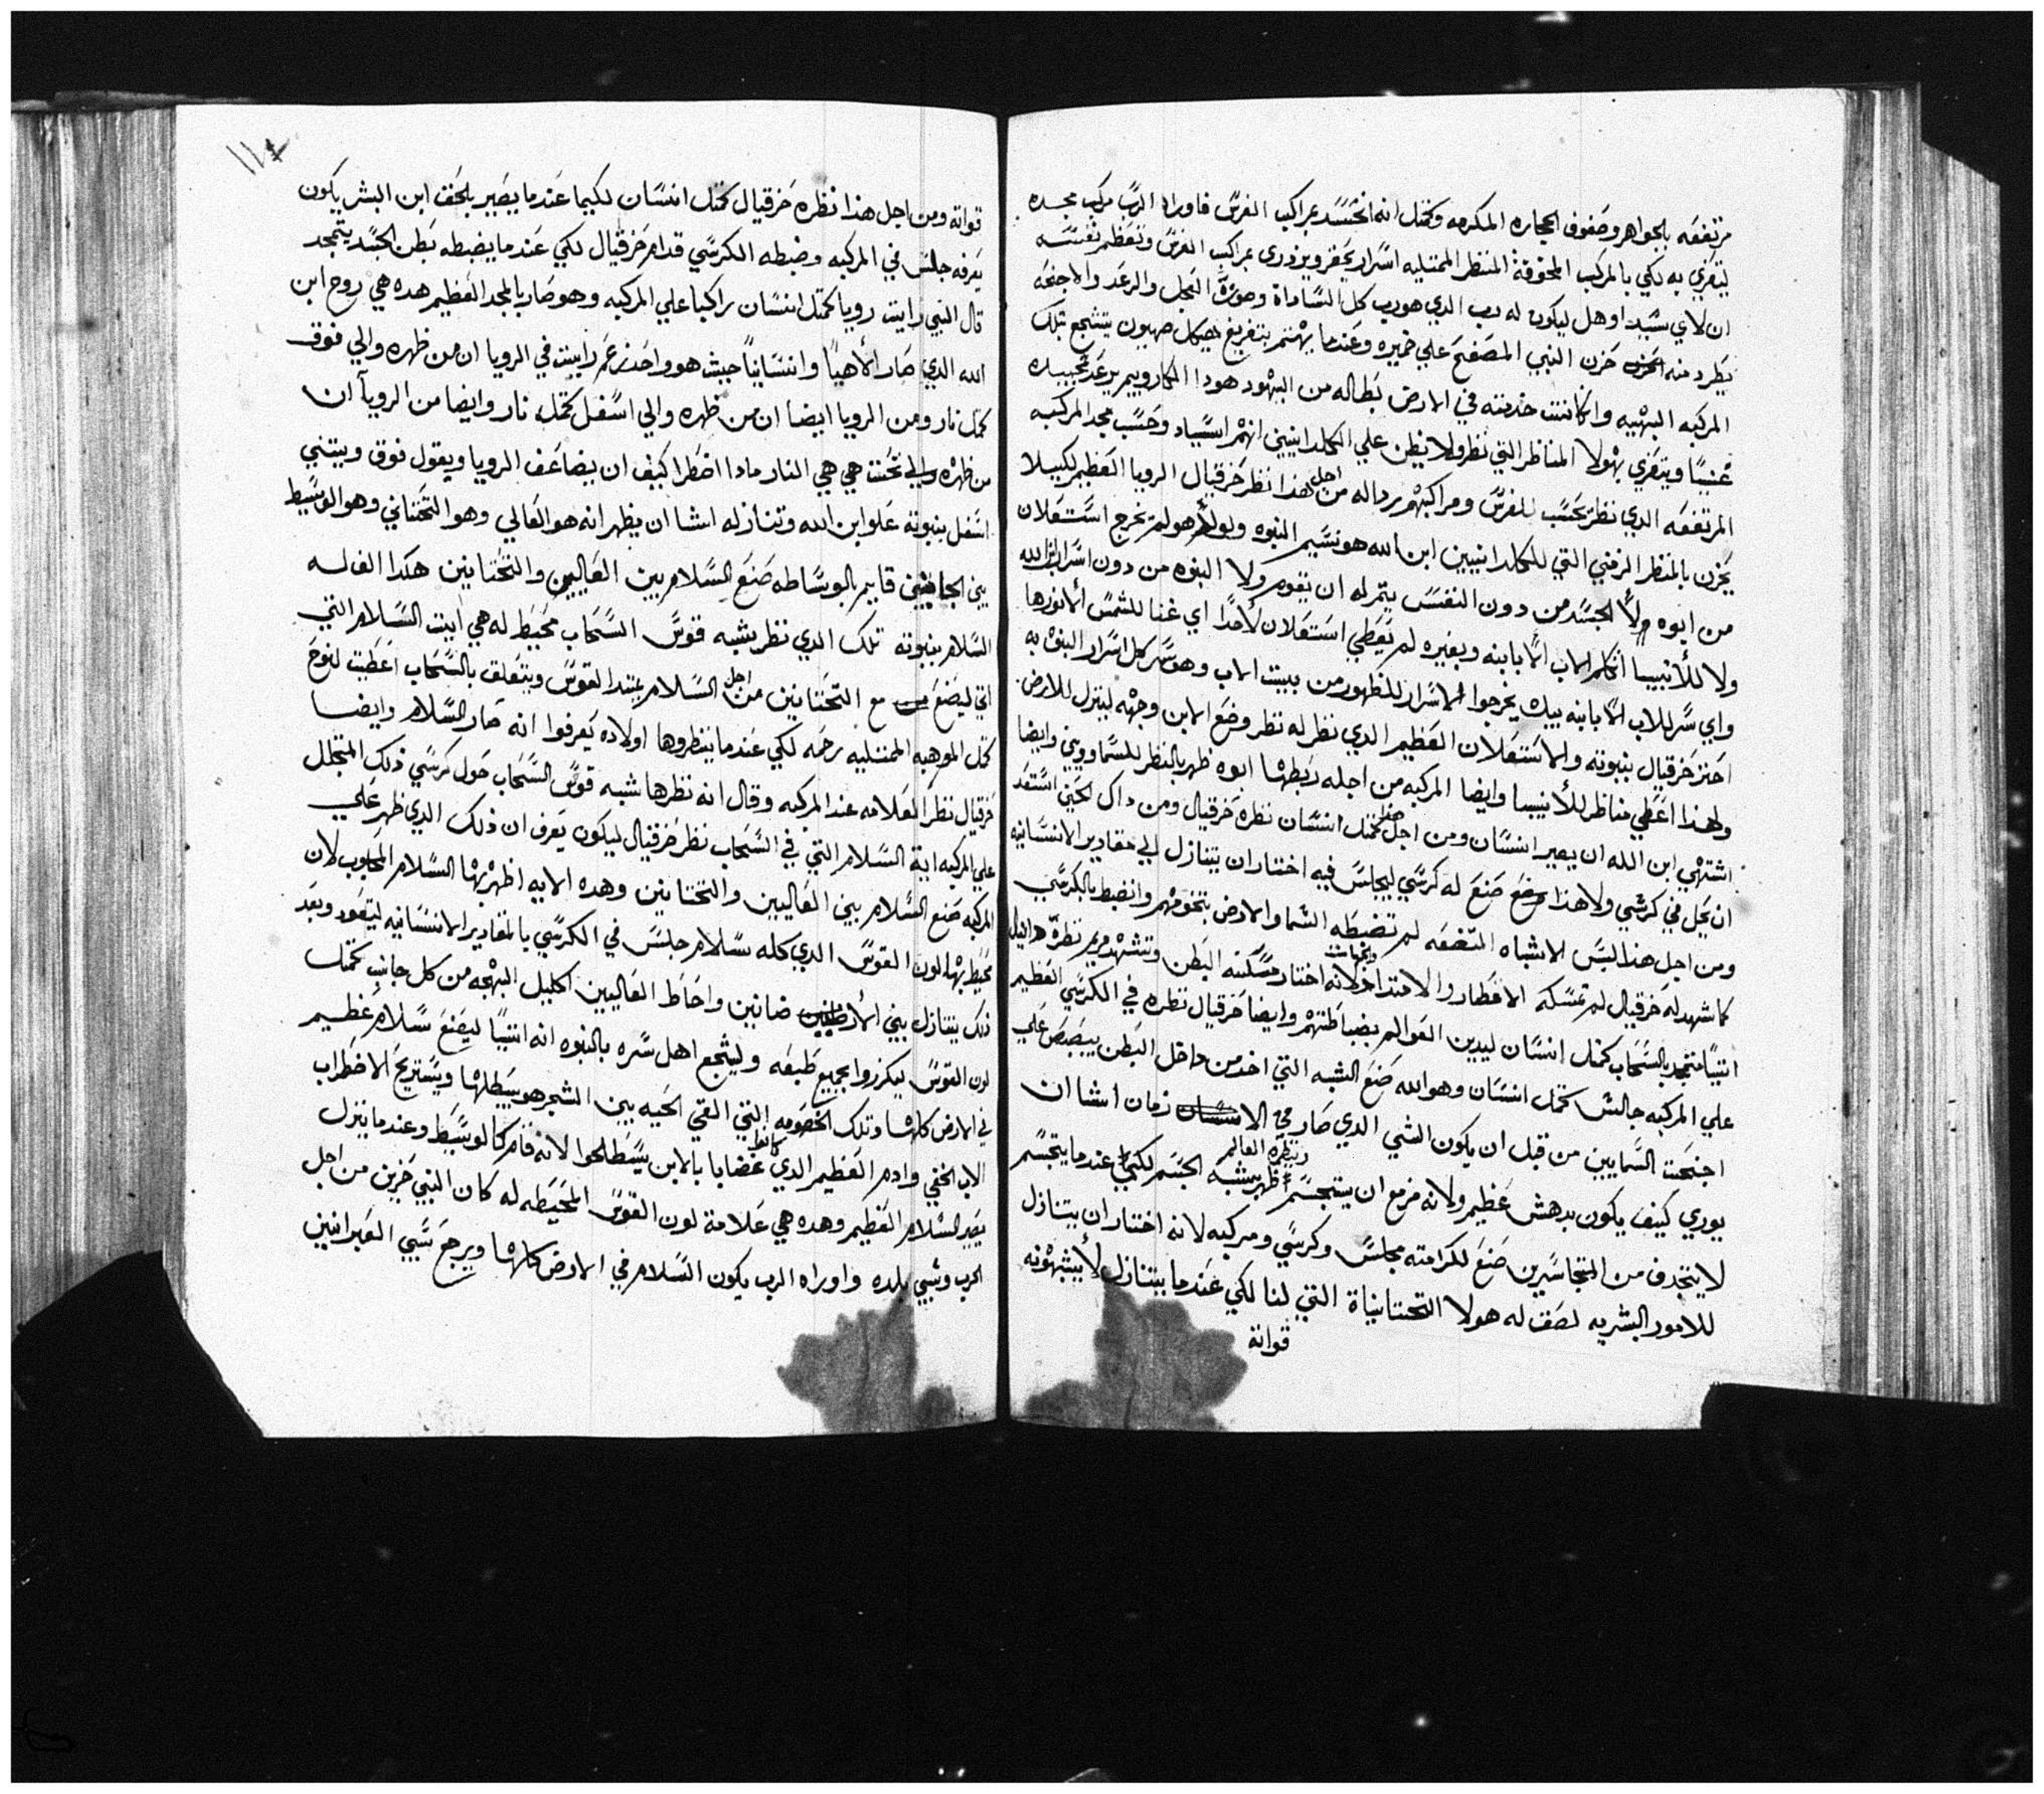 مرتفعه بالجواهر وصفوف الحجاره المكرمه وكمثل انه انحسد بمراكب الفرس فاوراه الرب مركب مجده
ليتعزي به لكي بالمركب المخوفة المنظر الممتليه اسرار يحقر ويزدري بمراكب الفرس وتعظم نفسه
ان لاي سيد اوهل ليكون له رب الدي هو رب كل السادات وصورة العجل والرعد والاجنحه
يطرد منه حزن النبي المصفح علي ضميره وعندما يهتم بتفريغ هيكل صهيون يتشجع بتلك
المركبه البهيه وان كانت خدمته في الارض بطاله من اليهود هودا الكاروبيم يرعد تمجيده
عنيبًا ويتعزي بهولا المناظر التي نظر ولا يظن علي الكلدانيين انهم اسياد وحسب مجد المركبه
المرتفعه الدي نظر تحسب للفرس ومراكبهم رداله من اجل هذا نظر حزقيال الرويا العظيم لكيلا
يحزن بالمنظر الزمني التي للكلدانيين ابن الله هو نسيم النبوه ولولا هو لم تخرج استعلان
من ابوه ولا الجسد من دون النفس يتم له ان يقوم ولا النبوه من دون اسرار ابن الله
ولا للأنبيا اتكلم الاب الا بابنه وبغيره لم يعطي استعلان لأحدًا اي غنا للشمس الا نورها
واي سر للاب الا بابنه بيده يخرجوا الاسرار للظهور من بيت الاب وهو سر كل اسرار النبوه به
اخبر حزقيال بنبوته والاستعلان العظيم الدي نظر له نظر وضع الابن وجهه لينزل للارض
ولهذا اعطي مناظر للأنبيا وايضا المركبه من اجله ربطها ابوه ظهر بالنظر للسماويين وايضا
اشتهي ابن الله ان يصير انسان ومن اجل هذا كمثل انسان نظره حزقيال ومن داك الحين استعد
ان يحل في كرسي ولاهذا صنع له كرسي ليجلس فيه اختار ان يتنازل الي مقادير الانسانيه
ومن اجل هذا لبس الاشباه المتضعه لم تضبطه السما والارض بتخومهم وانضبط بالكرسي
كما شهد له حزقيال لم تمسكه الاقطار والامتداد والجهات لانه اختار مسكنه البطن وتشهد مريم نظره دانيال
اتيبًا متجد بالسحاب كمثل انسان ليدين العوالم بضباطتهم وايضا حزقيال نظره في الكرسي العظيم
علي المركبه جالس كمثل انسان وهو الله صنع الشبه التي اخد من داخل البطن يبصبص علي
اجنحت السمايين من قبل ان يكون الشي الدي صار في زمان انشا ان
يوري كيف يكون بدهش عظيم ولانه مزمع ان يتجسم وينظره العالم اظهر بشبه الجسم لكيما عندما يتجسم
لا يتجدف من المتجاسرين صنع لكرامته مجلس وكرسي ومركبه لانه اختار ان يتنازل
للامور البشريه لصف له هولا التحتانيات التي لنا لكي عندما يتنازل لأ يشبهونه
قواته
١١٧
قواته ومن اجل هذا نظره حزقيال كمثل انسان لكيما عندما يصير بالحق ابن البشر يكون
يعرفه جلس في المركبه وضبطه الكرسي قدام حزقيال لكي عندما يضبطه بطن الجسد يتمجد
قال النبي رايت رويا كمثل انسان راكبا علي المركبه وهو صار بالمجد العظيم هده هي روح ابن
الله الدي صار الاهيًا وانسانيًا حيث هو واحد زعم راييت في الرويا ان من ظهره والي فوق
كمثل نار ومن الرويا ايضا ان من ظهره والي اسفل كمثل نار وايضا من الرويا ان
من ظهره والي تحت هي هي النار مادا اضطرا كييف ان يضاعف الرويا ويقول فوق ويتني
اسفل بنبوته علو ابن الله وتنازله انشا ان يظهر انه هو العالي وهو التحتاني وهو الوسيط
بين الجانبين قايم بالوساطه صنع السلام بين العاليين والتحتانيين هكدا الف له
السلام بنبوته تلك الدي نظر بشبه قوس السحاب محيط له هي ايت السلام التي
اتي ليصنع مع التحتانيين من اجل السلام يمتد القوس ويتعلق بالسحاب اعطيت لنوح
كمثل الموهبه الممتليه رحمه لكي عندما ينظروها اولاده يعرفوا انه صار السلام وايضا
حزقيال نظر العلامه عند المركبه وقال انه نظرها شبه قوس السحاب حول كرسي ذلك المتجلل
علي المركبه اية السلام التي في السحاب نظر حزقيال ليكون يعرف ان ذلك الدي ظهر علي
المركبه صنع السلام بين العاليين والتحتانيين وهده الايه اظهر بها السلام المحبوب لان
محيط بها لون القوس الدي كله سلام جلس في الكرسي بالمقادير الانسانيه ليتعود وبعد
ذلك يتنازل بين الارضيين ضانين واحاط العاليين اكليل البهجه من كل جانب كمثل
لون القوس ليكرزوا بجميع طبعه وليشجع اهل سره بالنبوه انه اتيبًا ليصنع سلام عظيم
في الارض كلها وتلك الخصومه التي القي الحيه بين الشجر هو يبطلها ويستريح الاضطراب
الاب الخفي وادم العظيم الدي كانوا غضابا بالابن يسطلحوا لانه قام كالوسيط وعندما ينزل
يصير السلام العظيم وهده هي علامة لون القوس المحيطه له كان النبي حزين من اجل
الحرب وشبي بلده واوراه الرب يكون السلام في الارض كلها ويرجع سبي العبرانيين